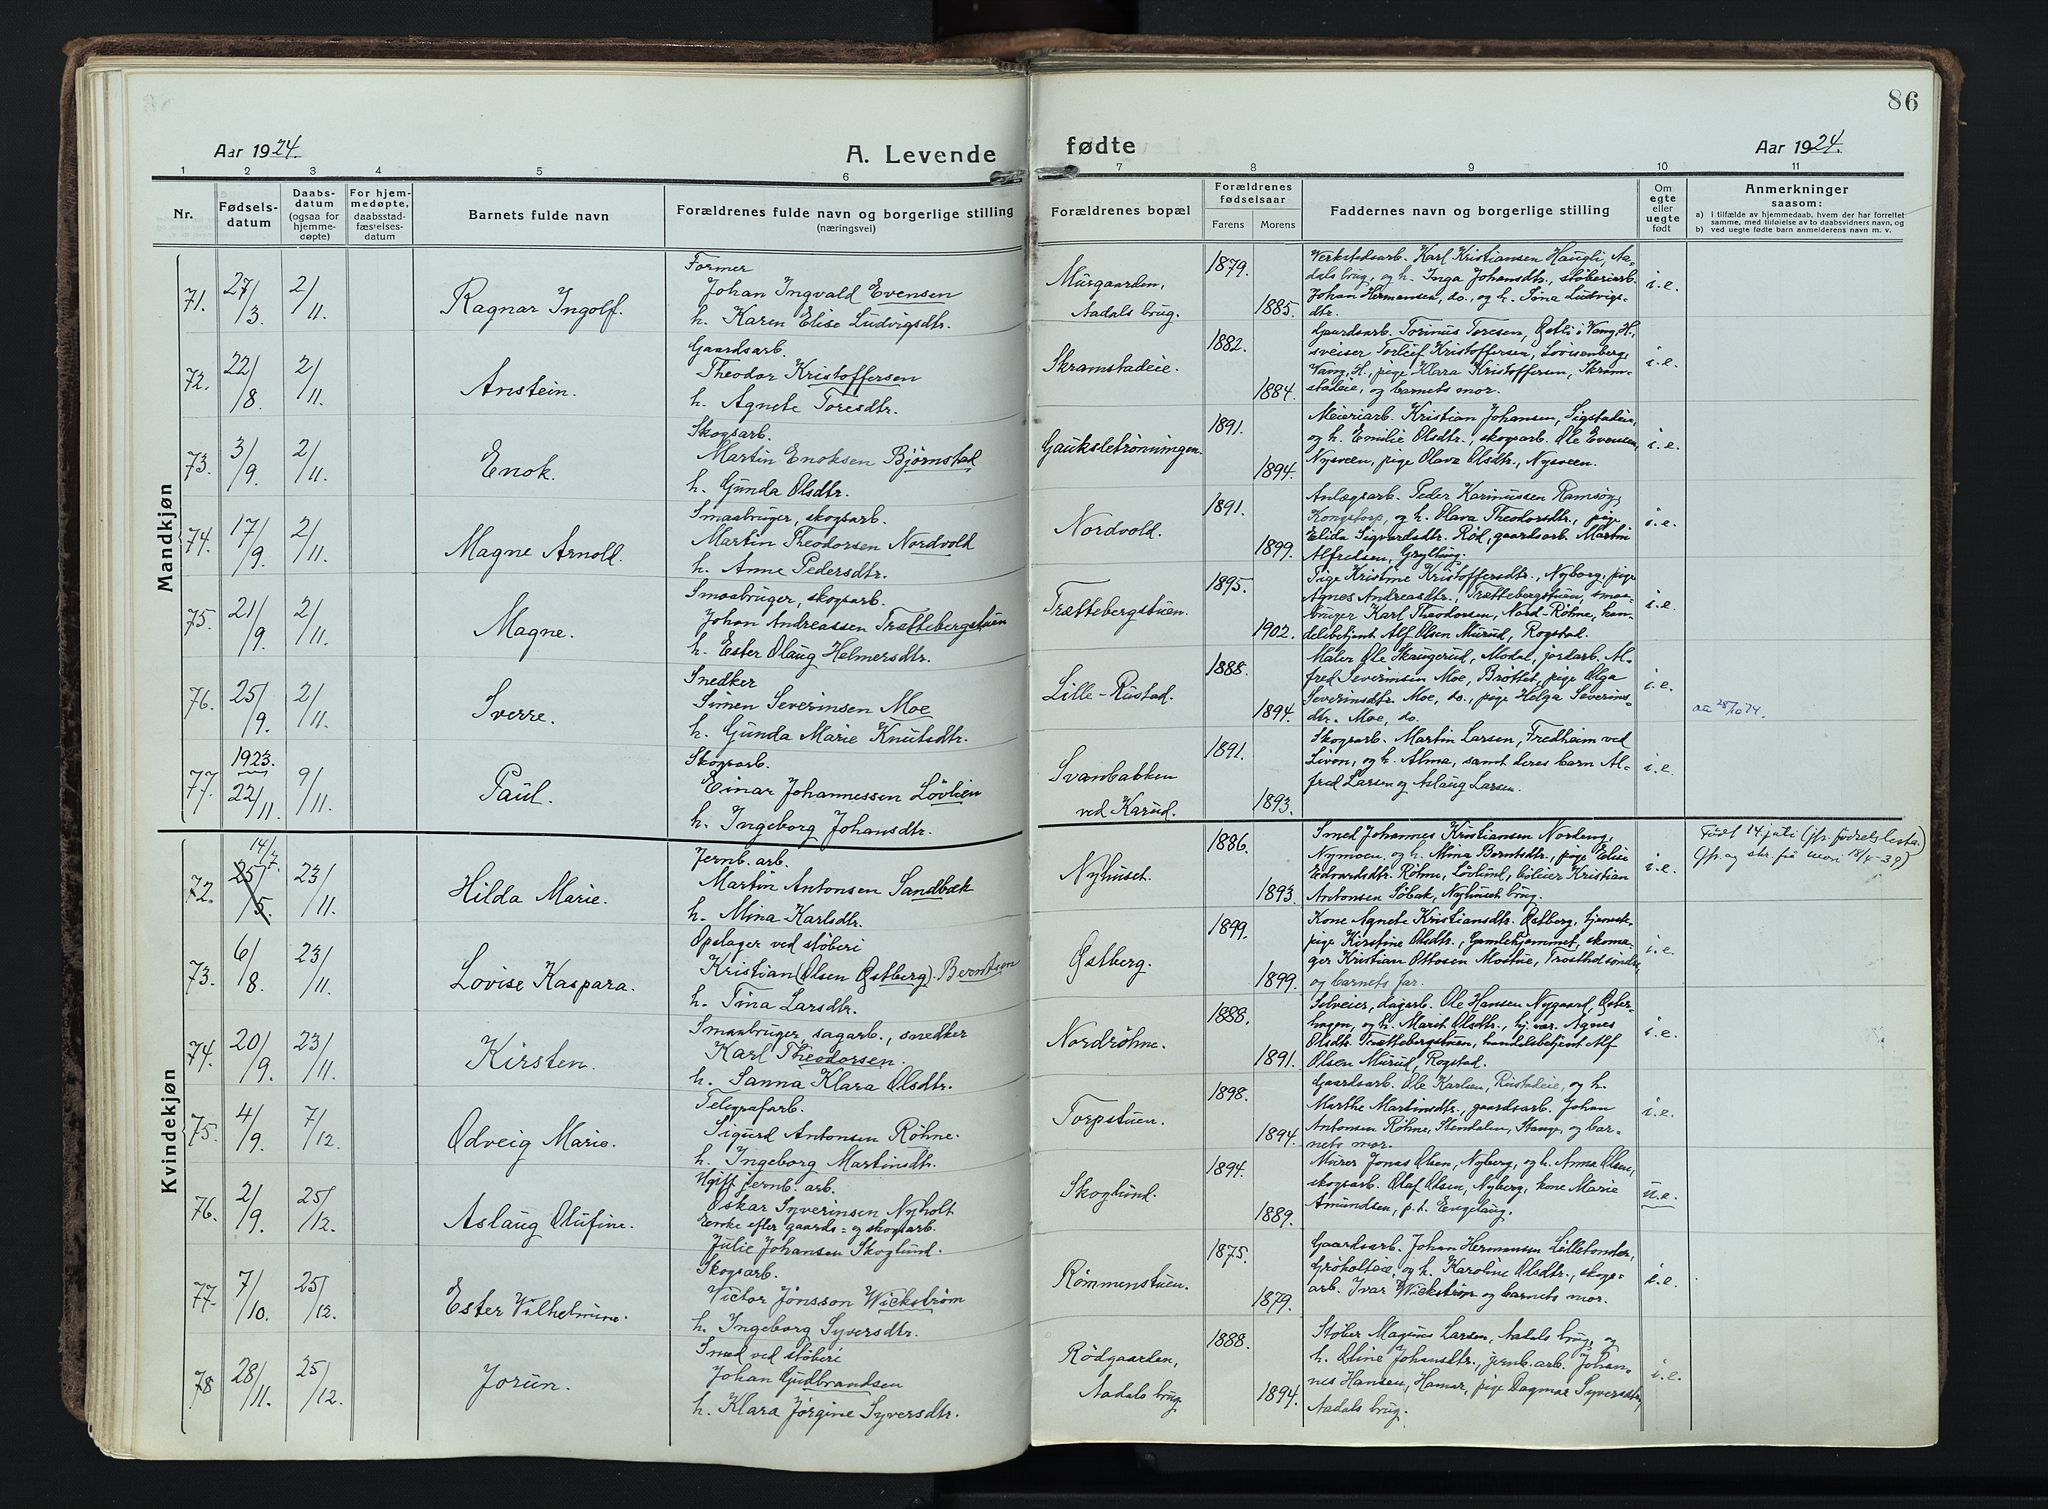 86
Aar 1924.
A. Levende
fødte
Aar 1924.
1 2 3 4 5 6 7 8 9 10 11
Nr.
Fødselsdatum
Daabsdatum
(ogsaa for hjemmedøpte)
For hjemmedøpte, daabsstadfæstelsesdatum
Barnets fulde navn
Forældrenes fulde navn og borgerlige stilling
(næringsvei)
Forældrenes bopæl
Forældrenes fødselsaar
Farens Morens
Faddernes navn og borgerlige stilling
Om egte eller uegte født
Anmerkninger
saasom:
a) I tilfælde av hjemmedaab, hvem der har forrettet samme, med tilføielse av to daabsvidners navn, og
b) ved uegte fødte barn anmelderens navn m. v.
Mandkjøn
71. 27/3. 2/11. Ragnar Ingolf.
Former
Johan Ingvald Evensen
h. Karen Elise Ludvigsdtr.
Mürgaarden,
Aadals brug.
1879.
1885.
Verkstedsarb. Karl Kristiansen Haugli, Aa-
dals brug, og h. Inga Johansdtr., støberiarb.
Johan Hermansen, do., og h. Sina Ludvigs-
dtr.
i.e.
72. 22/8. 2/11. Arnstein.
Gaardsarb.
Theodor Kristoffersen
h. Agnete Toresdtr.
Skramstadeie.
1882.
1884.
Gaardsarb. Torinus Toresen, Østli i Vang, H.,
sveiser Torleif Kristoffersen, Lovisenberg,
Vang, H., pige Klara Kristoffersen, Skram-
stadeie, og barnets mor.
i.e.
73. 3/9. 2/11. Enok.
Skogsarb.
Martin Enoksen Bjørnstad
h. Gunda Olsdtr.
Gaukseltrønningen.
1891.
1894.
Meieriarb. Kristian Johansen, Sigstadeie,
og h. Emilie Olsdtr., skogsarb. Ole Evensen,
Nysveen, pige Olava Olsdtr., Nysveen.
i.e.
74. 17/9. 2/11. Magne Arnold.
Smaabruger, skogsarb.
Martin Theodorsen Nordvold
h. Anne Pedersdtr.
Nordvold.
1891.
1899.
Anlægsarb. Peder Karinussen Ramsøy,
Kongstorp, og h. Olava Theodorsdtr., pige
Elida Sigvardsdtr. Rød, gaardsarb. Martin
Alfredsen, Grylting.
i.e.
75. 21/9. 2/11. Magne.
Smaabruger, skogsarb.
Johan Andreassen Trættebergstuen
h. Ester Olaug Helmersdtr.
Trættebergstuen.
1895.
1902.
Pige Kristine Kristoffersdtr., Nyborg, pige
Agnes Andreasdtr., Trættebergstuen, smaa-
bruger Karl Theodorsen, Nord-Røhne, han-
delsbetjent Alf Olsen Murud, Rogstad.
i.e.
76. 25/9. 2/11. Sverre.
Snedker
Simen Severinsen Moe
h. Gunda Marie Knutsdtr.
Lille-Rustad.
1888.
1894.
Maler Ole Skaugerud, Modal, jordarb. Al-
fred Severinsen Moe, Bröttet, pige Olga
Severinsdtr. Moe, do., pige Helga Severins-
dtr. Moe, do.
i.e.
aa 28/10 74.
77. 1923. 22/11. 9/11. Paul.
Skogsarb.
Einar Johannessen Løvlien
h. Ingeborg Johansdtr.
Svanbakken
ved Karud.
1891.
1893.
Skogsarb. Martin Larsen, Fredheim ved
Livon, og h. Alma, samt deres barn Al-
fred Larsen og Aslaug Larsen.
i.e.
Kvindekjøn
72. 14/7 25/5. 23/11. Hilda Marie.
Jernb. arb.
Martin Antonsen Sandbæk
h. Mina Karlsdtr.
Nyhuset.
1886.
1893.
Smed Johannes Kristiansen Nordeng,
Nymoen, og h. Mina Berntsdtr., pige Elise
Edvardsdtr. Røhne, Løvlund, bøleier Kristian
Antonsen Søbak, Nyhuset brug.
i.e.
Født 14 juli (jfr. fødselsliste.
Jfr. og skr. fra mori 18/4-39)
73. 6/8. 23/11. Lovise Kaspara.
Opslager ved støberi
Kristian (Olsen Østberg). Berntson
h. Tina Larsdtr.
Østberg.
1899.
1899.
Kone Agnete Kristiansdtr. Østberg, tjeneste-
pige Kirstine Olsdtr., Gamlehjemmet, skoma-
ger Kristian Ottosen Mostue, Trosthol søndre,
og barnets far.
i.e.
74. 20/9. 23/11. Kirsten.
Smaabruger, sagarb., snedker
Karl Theodorsen.
h. Sanna Klara Olsdtr.
Nordrøhne.
1888.
1891.
Selveier, dagarb. Ole Hansen Nygaard, Øster-
hagen, og h. Marit Olsdtr., hj. vær. Agnes
Olsdtr. Trættebergstuen, handelsbetjent Alf
Olsen Murud, Rogstad.
i.e.
75. 4/9. 7/12. Odveig Marie.
Telegrafarb.
Sigurd Antonsen Røhne.
h. Ingeborg Martinsdtr.
Torpstuen.
1898.
1894.
Gaardsarb. Ole Karlsen, Rustadeie, og h.
Marthe Martinsdtr., gaardsarb. Johan
Antonsen Røhne, Stendalen, Stange, og bar-
nets mor.
i.e.
76. 2/9. 25/12. Aslaug Olufine.
Ugift jernb. arb.
Oskar Syverinsen Nyholt
Enke efter gaards- og skogsarb.
Julie Johansen Skoglund.
Skoglund.
1894.
1889.
Murer Jonas Olsen, Nyberg, og h. Anna Olsen,
skogsarb. Olaf Olsen, Nyberg, kone Marie
Amundsen, p.t. Engelaug.
u.e.
77. 7/10. 25/12. Ester Vilhelmine.
Skogsarb.
Victor Jonsson Wickstrøm
h. Ingeborg Syversdtr.
Rømmenstuen.
1875.
1879.
Gaardsarb. Johan Hermansen Lilletonder,
Grøholteie, og h. Karoline Olsdtr., skogs-
arb. Ivar Wickstrøm og barnets mor.
i.e.
78 28/11. 25/12. Jorun.
Smed ved støberi
Johan Gudbrandsen
h. Klara Jørgine Syversdtr.
Rødgaarden,
Aadals brug.
1888.
1894.
Støber Magnus Larsen, Aadals brug, og
h. Oline Johansdtr., jernb. arb. Johan-
nes Hansen, Hamar, pige Dagmar Syversdtr.,
Aadals brug.
i.e.